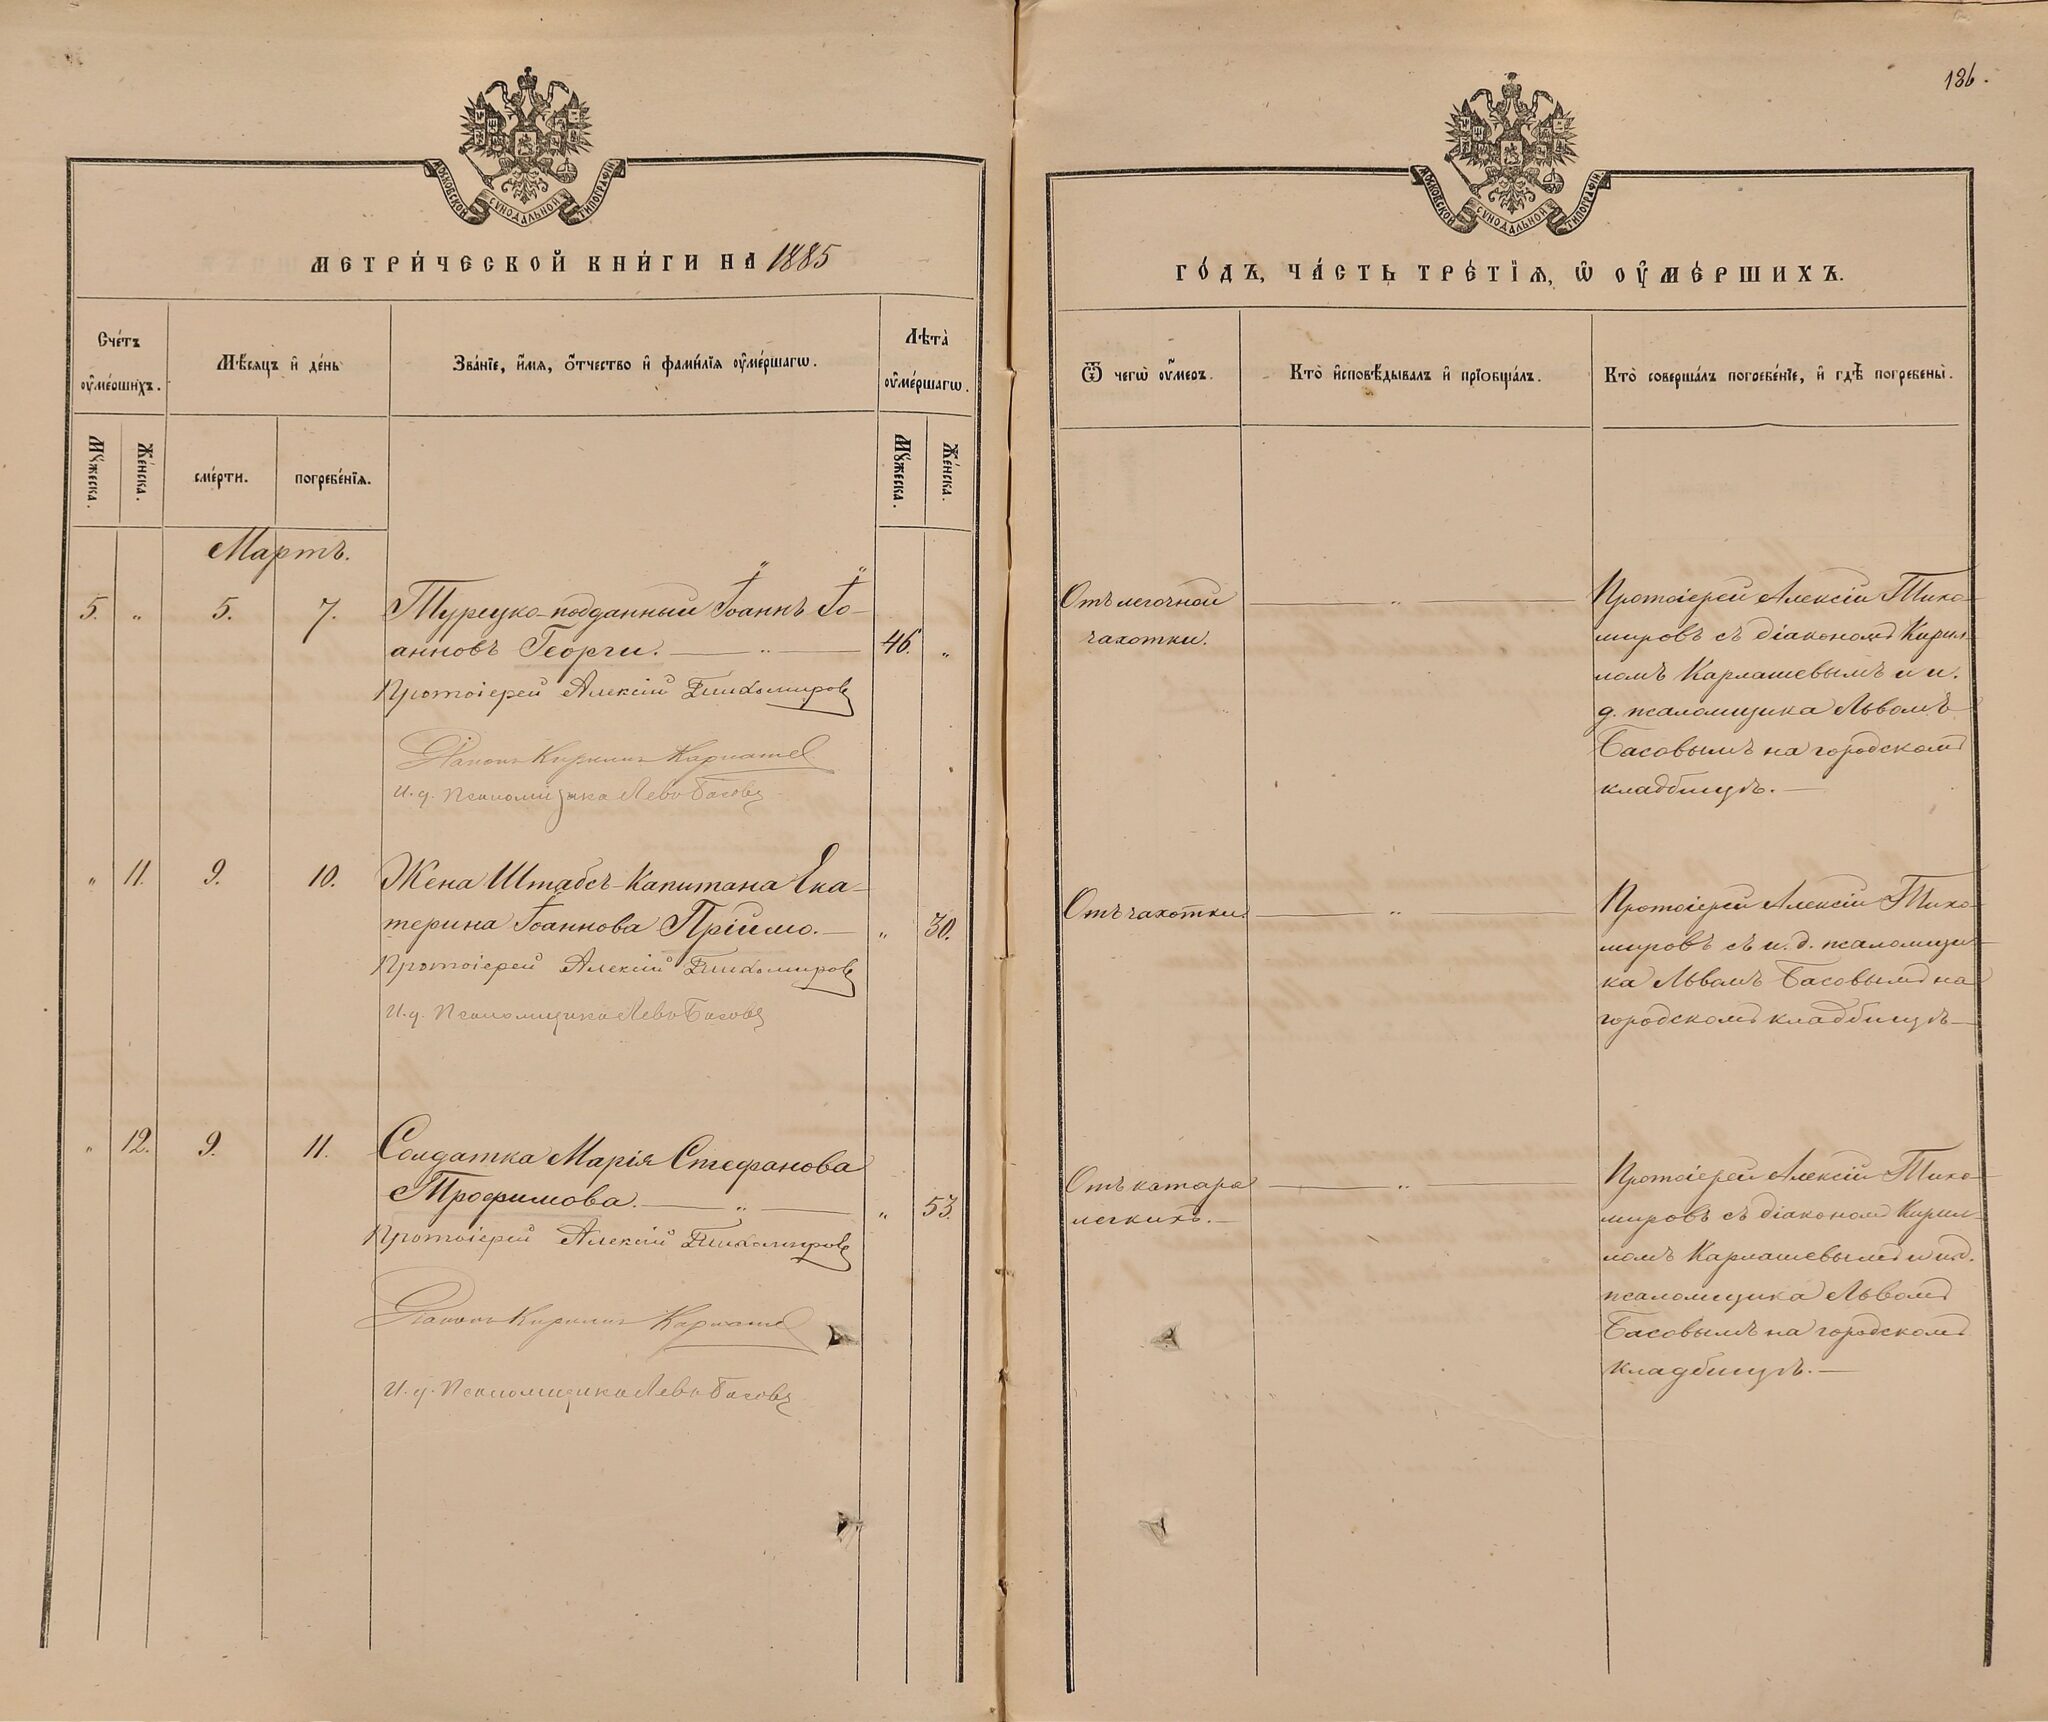 136.
МОСКОВСКОЙ СѴНОДАЛЬНОЙ ТИПОГРАФІИ
МОСКОВСКОЙ СѴНОДАЛЬНОЙ ТИПОГРАФІИ
МЕТРИ́ЧЕСКОЙ КНИ́ГИ НА 1885
ГО́ДЪ, ЧА́СТЬ ТРЕ́ТЇѦ, Ѡ ОУ҆МЕ́РШИХЪ.
Сче́тъ
оу҆ме́ршихъ.
Мѣ́сяцъ и҆ де́нь
Зва́нїе, и҆́мя, ѻ҆́тчество и҆ фами́лїя оу҆ме́ршагѡ.
Лѣта̀
оу҆ме́ршагѡ.
Ѿ чегѡ̀ оу҆́меръ.
Кто̀ и҆сповѣ́дывалъ и҆ прїѻбща́лъ.
Кто̀ соверша́лъ погребе́нїе, и҆ гдѣ̀ погребены̀.
Мꙋ́жеска.
Же́нска.
сме́рти.
погребе́нїя.
Мꙋ́жеска.
Же́нска.
Мартъ.
5. „ 5. 7. Турецко-подданный Іоаннъ Іо-
анновъ Георги. — „ — 46. „
Протоіерей Алексій Тихомировъ
Діаконъ Кириллъ Карпаше
И. д. Псаломщика Левъ Басовъ
Отъ легочной — „ —
чахотки.
Протоіерей Алексій Тихо-
мировъ съ діакономъ Кирил-
ломъ Карпашевымъ и и.
д. псаломщика Львомъ
Басовымъ на городскомъ
кладбищѣ. —
„ 11. 9. 10. Жена Штабсъ-Капитана Ека-
терина Іоаннова Пріймо. — „ 30.
Протоіерей Алексій Тихомировъ
И. д. Псаломщика Левъ Басовъ
Отъ чахотки. — „ —
Протоіерей Алексій Тихо-
мировъ съ и. д. псаломщи-
ка Львомъ Басовымъ на
городскомъ кладбищѣ —
„ 12. 9. 11. Солдатка Марія Стефанова
Трофимова. — „ — „ 53.
Протоіерей Алексій Тихомировъ
Діаконъ Кириллъ Карпаше
И. д. Псаломщика Левъ Басовъ
Отъ катара — „ —
легкихъ. —
Протоіерей Алексій Тихо-
мировъ съ діакономъ Кирил-
ломъ Карпашевымъ и и.д.
псаломщика Львомъ
Басовымъ на городскомъ
кладбищѣ. —